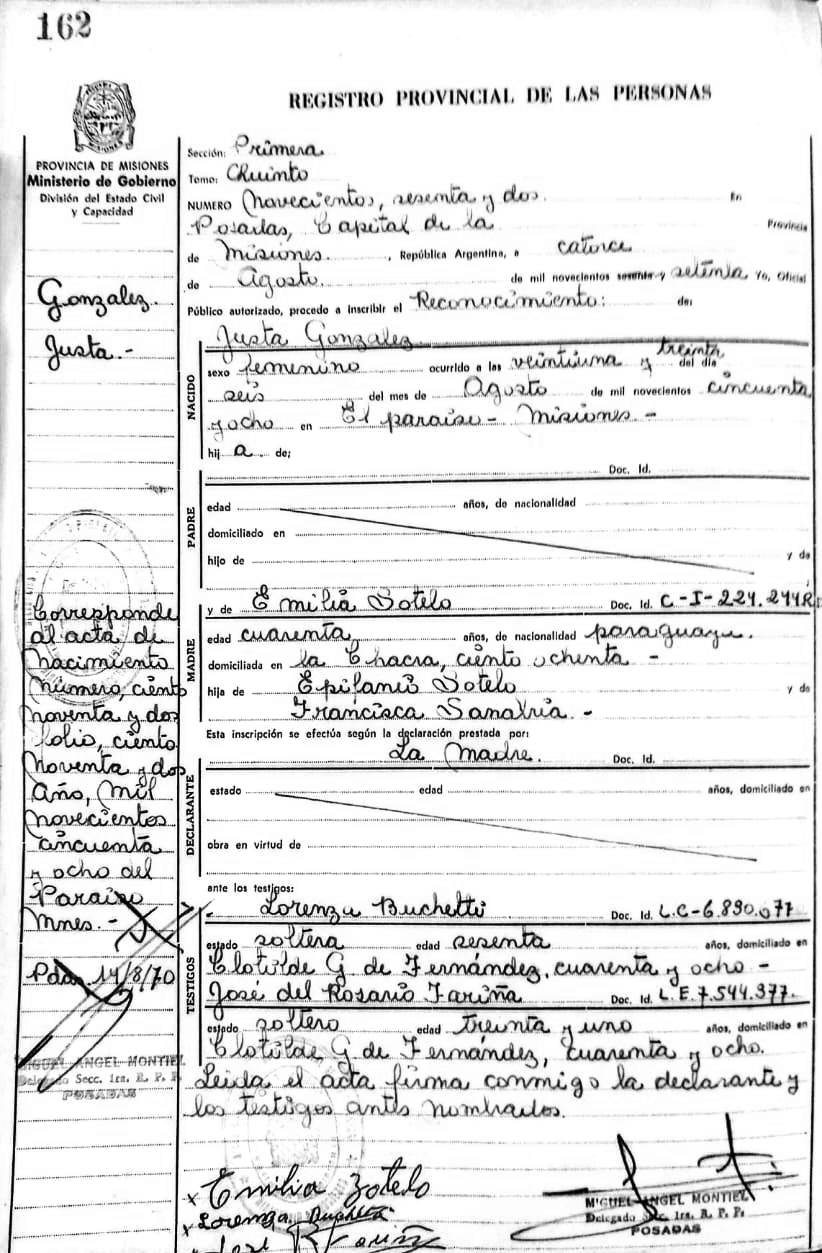 162
REGISTRO PROVINCIAL DE LAS PERSONAS
PROVINCIA DE MISIONES
Ministerio de Gobierno
División del Estado Civil
y Capacidad
Gonzalez
Justa.-
Corresponde
al acta de
Nacimiento
Número, ciento
noventa y dos
folio, ciento
noventa y dos
Año, Mil
novecientos
cincuenta
y ocho del
Paraiso
Mnes.-
Pdas. 14/8/70
MIGUEL ANGEL MONTIEL
Delegado Secc. 1ra. R. P. P.
POSADAS
Sección: Primera
Tomo: Quinto
NUMERO Novecientos, sesenta y dos. En
Posadas, Capital de la Provincia
de Misiones. , República Argentina, a catorce
de Agosto. de mil novecientos sesenta y setenta Yo, Oficial
Público autorizado, procedo a inscribir el Reconocimiento: de:
Justa Gonzalez
NACIDO
sexo femenino ocurrido a las veintiuna y treinta del día
seis del mes de Agosto de mil novecientos cincuenta
y ocho en El paraiso - Misiones -
hij a de;
Doc. Id.
PADRE
edad años, de nacionalidad
domiciliado en
hijo de y de
MADRE
y de Emilia Sotelo Doc. Id. C-I-224.244R
edad cuarenta años, de nacionalidad paraguaya.
domiciliada en la Chacra, ciento ochenta -
hija de Epifanio Sotelo y de
Francisca Sanabria -
Esta inscripción se efectúa según la declaración prestada por:
La Madre. Doc. Id.
DECLARANTE
estado edad años, domiciliado en
obra en virtud de
ante los testigos:
Lorenza Buchetti Doc. Id. L.C-6.830.077
TESTIGOS
estado soltera edad sesenta años, domiciliado en
Clotilde G. de Fernández, cuarenta y ocho -
José del Rosario Fariña Doc. Id. L.E.7.544.377.
estado soltero edad treinta y uno años, domiciliado en
Clotilde G. de Fernández, cuarenta y ocho.
Leida el acta firma conmigo la declarante y
los testigos antes nombrados.
x Emilia Zotelo
x Lorenza Buchetti
José R Fariña
MIGUEL ANGEL MONTIEL
Delegado Secc. 1ra. R. P. P.
POSADAS